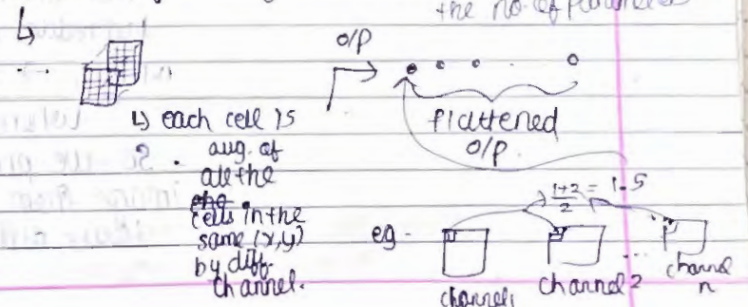 the no. of parameters
↳
O/P
↳ each cell is
avg. of
all the
cells in the
same (x,y)
by diff
channel.
flattened
O/P.
eg -
1+2/2 = 1.5
channel 1
channel 2
...
channel
n